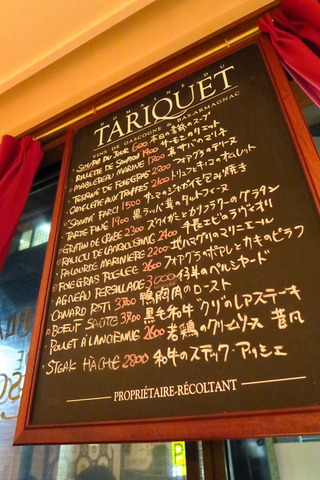 DOMAINE DU
TARIQUET
VINS DE GASCOGNE BAS-ARMAGNAC
SOUPE DU JOUR 600 本日の季節のスープ
RILLETTE DE SAUMON 1400 サーモンのリエット
MAQUEREAU MARINE 1700 真サバのマリネ
TERRINE DE FOIE GRAS 2200 フォアグラのテリーヌ
OMELETTE AUX TRUFFES 2100 トリュフとキノコのオムレット
"SANMA" FARCI 1500 サンマのジャガイモ包み焼き
TARTE FINE 1900 黒トランペット茸のタルトフィーヌ
GRATIN DE CRABE 2300 ズワイガニとカリフラワーのグラタン
RAVIOLI DE LANGOUSTINE 2400 手長エビのラヴィオリ
PALOURDE MARINIERE 2200 地ハマグリのマリニエール
FOIE GRAS POELEE 2600 フォアグラのポワレとカキのピラフ
AGNEAU PERSILLADE 3000 仔羊のペルシヤード
CANARD ROTI 3700 鴨胸肉のロースト
BOEUF SAUTE 3800 黒毛和牛 クリのレアステーキ
POULET A L'ANCIENNE 2600 若鶏のクリームソース 昔風
STEAK HACHE 2800 和牛のステック・アッシェ
PROPRIÉTAIRE-RÉCOLTANT